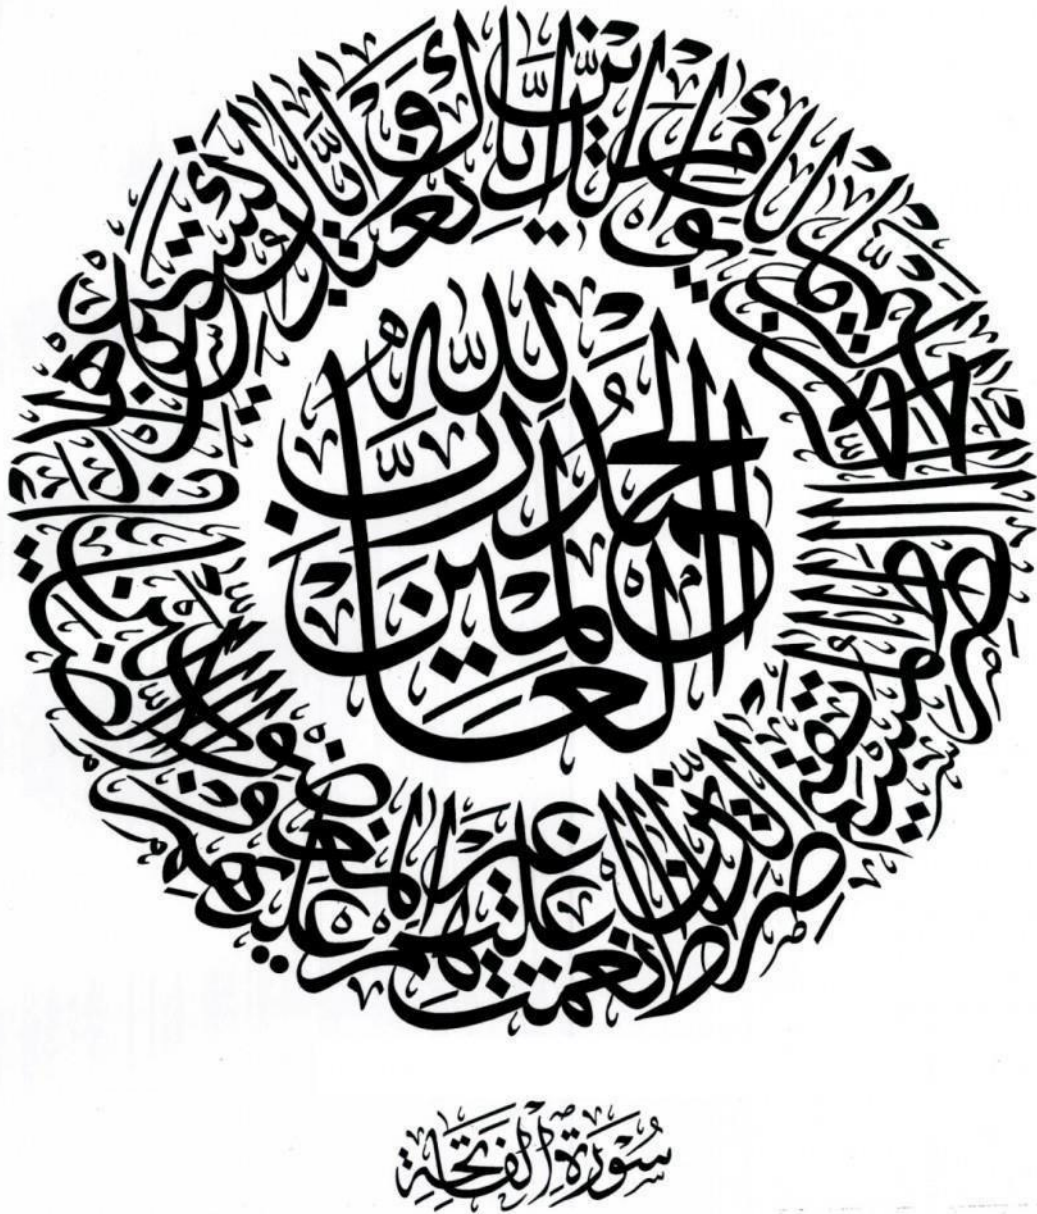 الحمد لله رب العالمين
الرحمن الرحيم ملك يوم الدين إياك نعبد وإياك نستعين اهدنا الصراط المستقيم صراط الذين أنعمت عليهم غير المغضوب عليهم ولا الضالين
سُورَةُ الفَاتِحَةِ